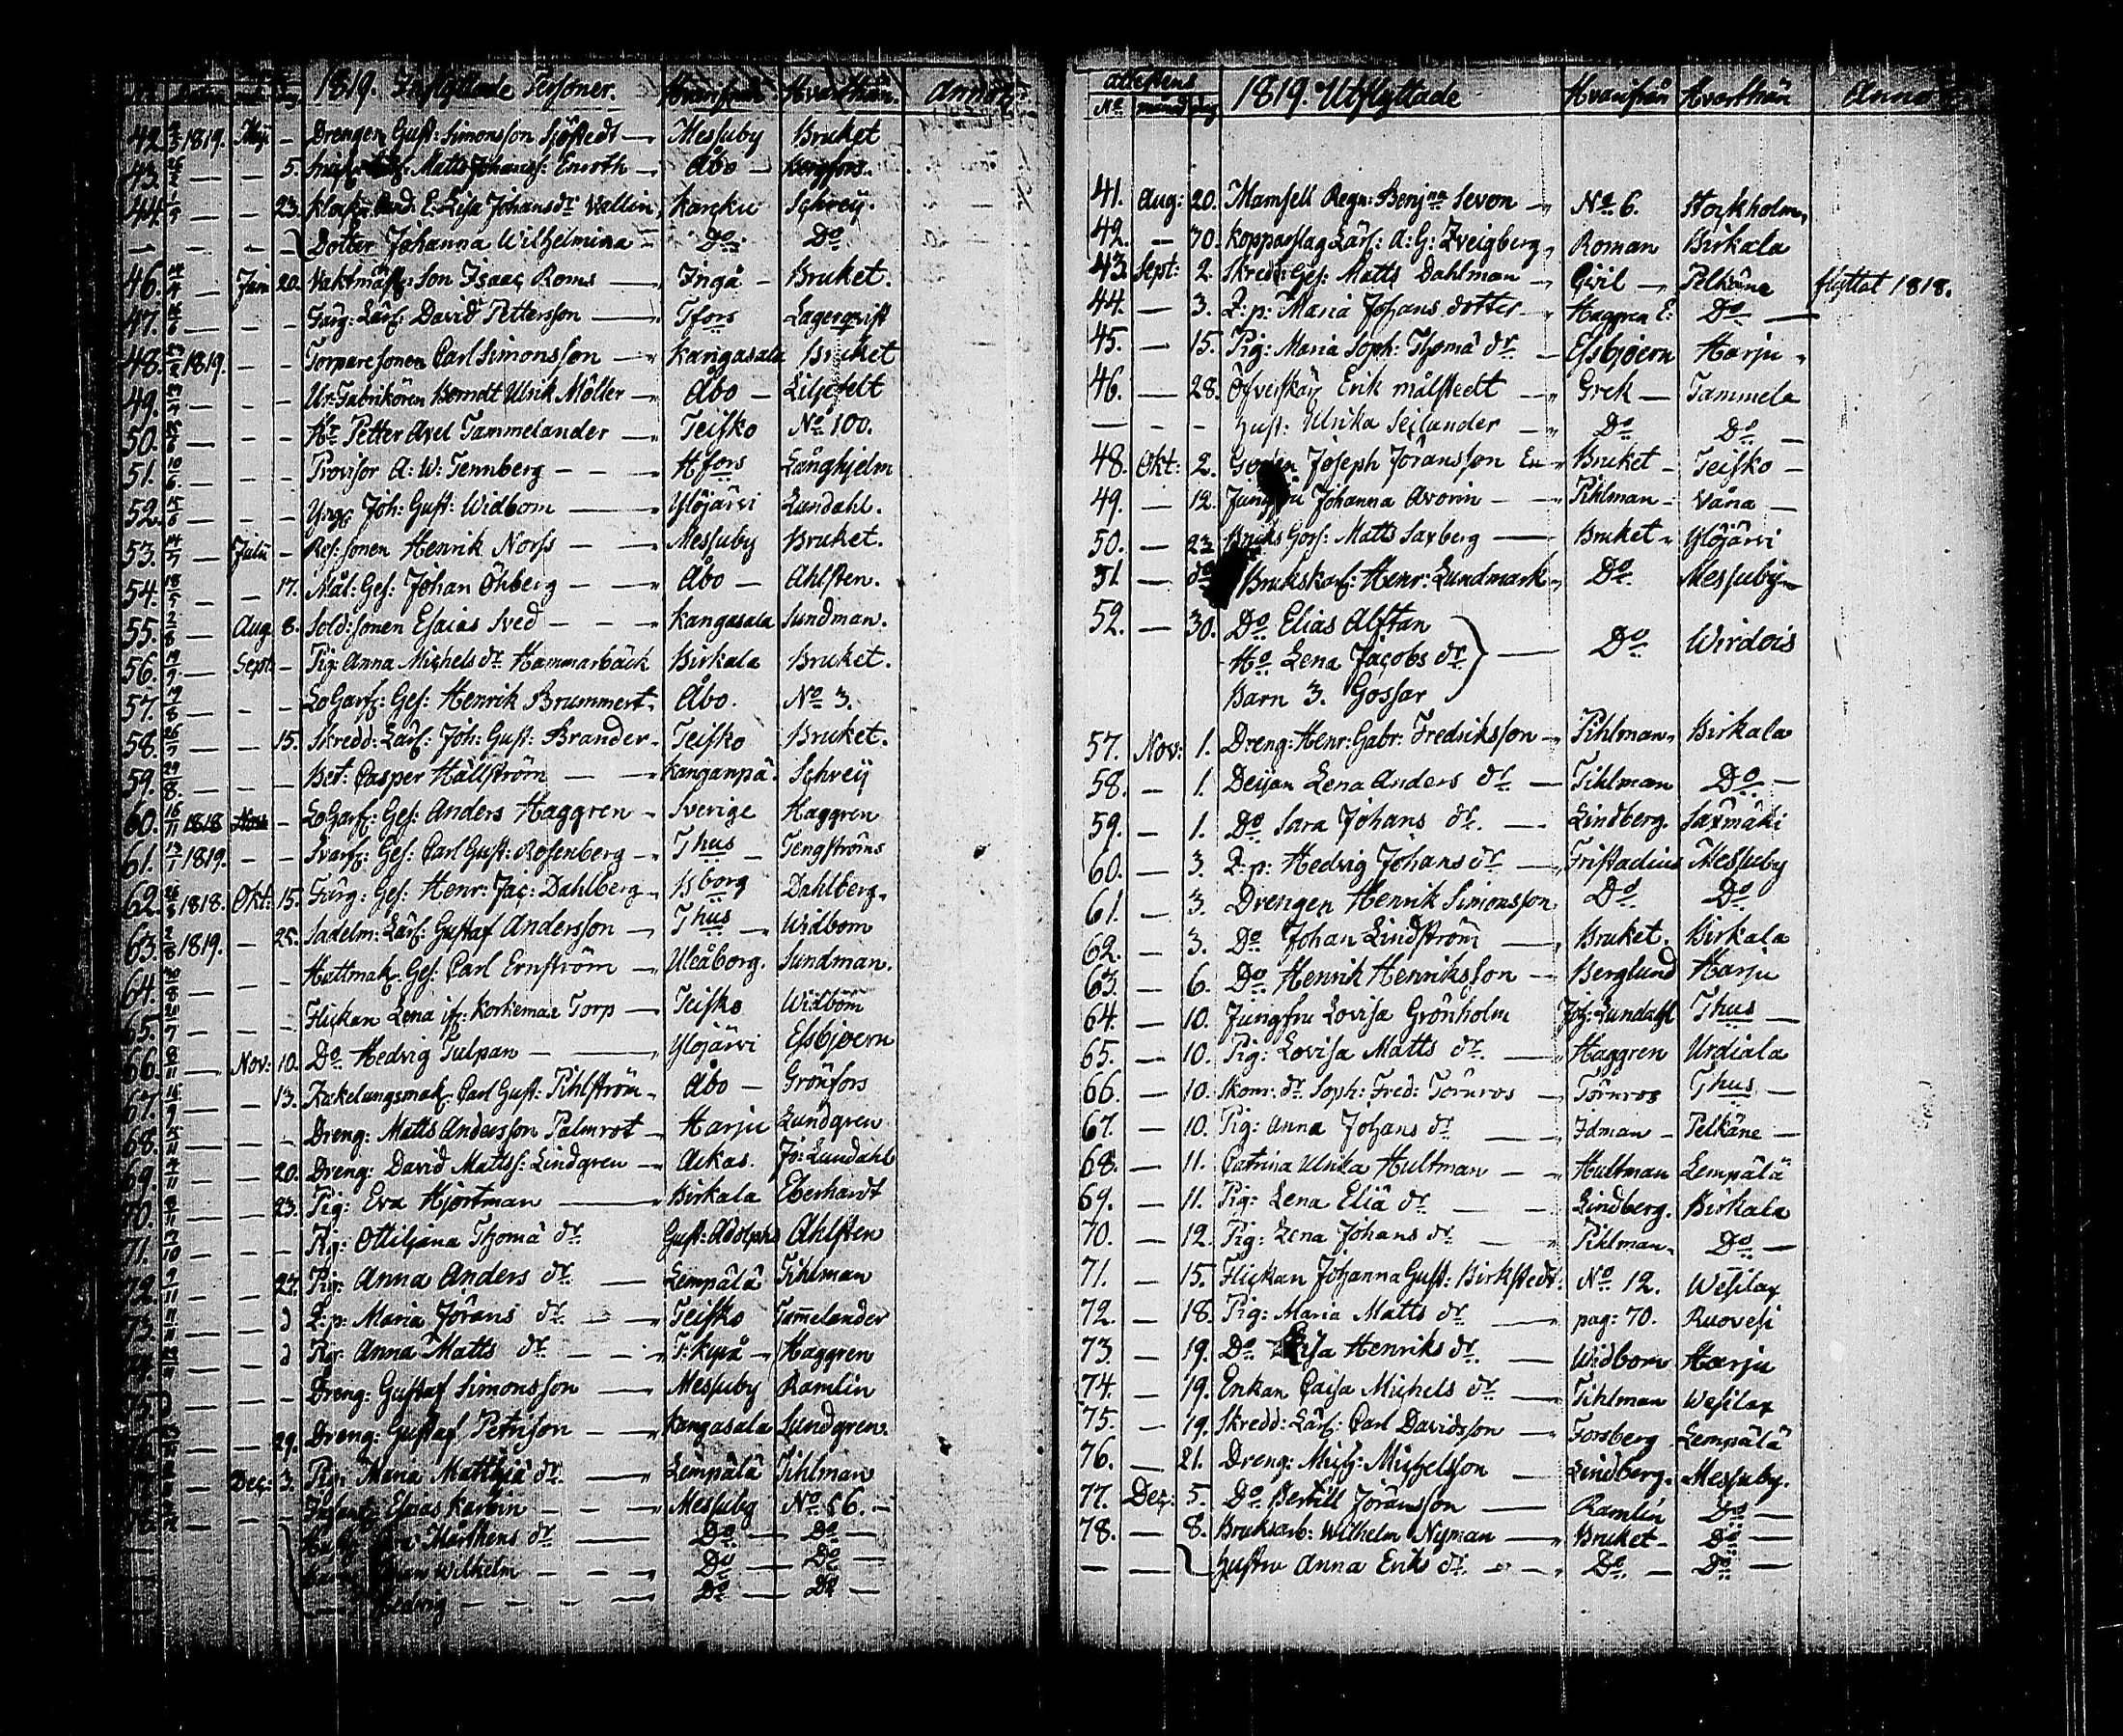 1819. Inflyttade Personer. Hvarifrån Hvarthän. Annot:
42. 1819. Maji - Drengen Gust: Simonsson Sjöstedt — Messuby Bruket
43. — — 5. Matts Johanss: Enroth — Åbo — Bergfors.
44. — — 23. E: Lisa Johans dr Vallin, Karcku Schreij.
— — — - Dotter Johanna Wilhelmina — Do Do
46. — Juni 20. Vaktmäst: Son Isaac Roms — Ingå - Bruket.
47. — - - Färg: Lärl: David Pettersson — Tfors Lagerqvist
48. 1819. - - Torparesonen Carl Simonsson — Kangasala Bruket
49. — - - Ur-Fabrikören Berndt Ulrik Möller — Åbo — Liljefelt
50. — - - Hr Petter Axel Tammelander — Teisko No 100.
51. — - - Provisor A: W: Tennberg - - — Hfors Långhjelm
52. — — - Joh: Gust: Widbom — Ylöjärvi Lundahl.
53. — Julii - Res: sonen Henrik Norss - — Messuby Bruket.
54. — — 17. Mål: Ges: Johan Öhberg - — Åbo — Ahlsten.
55. — Aug 8. Sold: sonen Esaias Sved - - — Kangasala Sundman.
56. — Sept: - Pig: Anna Michels dr Hammarbäck Birkala Bruket.
57. — - - LoGarf: Ges: Henrik Brummert. Åbo. No 3.
58. — — 15. Skredd: Lärl: Joh: Gust: Brander. Teisko Bruket.
59. — - - Bet: Casper Hällström — — Kanganpä. Schreij
60. 1818 - LoGarf: Ges: Anders Haggren - Sverige Haggren
61. 1819. - - Svarf: Ges: Carl Gust: Rosenberg — Thus — Tengströms
62. 1818. Okt: 15. Färg: Ges: Henr: Jac: Dahlberg — Dahlberg.
63. 1819. — 25. Sadelm: Lärl: Gustaf Andersson — Thus — Widbom
64. — — - Hattmak: Ges: Carl Ernström — Uleåborg. Sundman.
65. — — - Flickan Lena Torp — Teisko Widbom
66. — Nov: 10. Do Hedvig Tulpan - — Ylöjärvi Essbjoern
67. — — 13. Kakelungsmak: Carl Gust: Pihlström - Åbo — Grönfors
68. — — - Dreng: Matts Andersson Palmrot — Harju Lundgren
69. — — 20. Dreng: David Mattss: Lindgren — Ackas. Jo: Lundahl
70. — — 23. Pig: Eva Hjortman — Birkala Eberhardt
71. — — - Pig: Ottiliana Thoma dr Gust: Adolphs Ahlsten
72. — — 27. Pig: Anna Anders dr — Lempälä Pihlman
73. — — Maria Jörans dr — Teisko Tam̅elander
74. — — Pig: Anna Matts dr - — T:kyrå — Haggren
75. — — - Dreng: Gustaf Simonsson — Messuby Ramlin
— — 29. Dreng: Gustaf — Kangasala Lundgren.
— Dec: 3. Pig: Maria Matthiä dr — Lempälä Pihlman
— — - Esaias - - — Messuby No 56. —
Mårtens dr — Do — Do —
Wilhelm - - - Do — Do —
— Hedvig - - - — Do — Do —
attestens 1819. Utflyttade Hvarifrån Hvarthän Annot
No månad dag
41. Aug: 20. Mamsell Regn: Benj:na Sevon — No 6. Stockholm,
42. — Kopparslag Lärl: A: G: Zveigberg, Roman Birkala
43. Sept: 2. Skredd: Ges: Matts Dahlman — Gvil — Pelkäne flyttat 1818.
44. — 3. Maria Johans dotter — Haggren E: Do —
45. — 15. Pig: Maria Soph: Thomä dr — Essbjoern Harju -
46. — 28. Erik Målstedt — Grek — Tammela
— - - Hust: Ulrika — Do Do —
48. Okt: 2. Joseph Jöransson — Bruket — Teisko —
49. — 12. Jungfru Johanna Avorin - — Pihlman — Våna —
50. — 23 Bruks Matts Saxberg — Bruket - Ylöjärvi
51 — do Brukskarl: Henr: Lundmark — Do Messuby —
52. — 30. Do Elias Alstan
Ho Lena Jacobs dr — Do Wirdois
Barn 3. Gossar
57. Nov: 1. Dreng: Henr: Gabr: Fredriksson — Pihlman. Birkala
58. — 1. Deijan Lena Anders dr — Pihlman Do —
59. — 1. Do Sara Johans dr. — Lindberg. Saxmäki
60. — 3. Hedvig Johans dr — Fristadius Messuby
61. — 3. Drengen Henrik Simonsson Do Do
62. — 3. Do Johan Lindström — Bruket. Birkala
63. — 6. Do Henrik Henriksson — Berglund Harju
64. — 10. Jungfru Lovisa Grönholm Joh: Lundahl Thus —
65. — 10. Pig: Lovisa Matts dr — Haggren Urdiala
66. — 10. Skom: dr Soph: Fred: Törnros — Törnros Thus —
67. — 10. Pig: Anna Johans dr — Idman — Pelkäne —
68. — 11. Catrina Ulrika Hultman — Hultman Lempälä
69. — 11. Pig: Lena Eliä dr — Lindberg. Birkala
70. — 12. Pig: Lena Johans dr — Pihlman. Do —
71. — 15. Flickan Johanna Gust: Birkstedt. No 12. Wesilax
72. — 18. Pig: Maria Matts dr — pag: 70. Ruovesi
73. — 19. Do Henriks dr — Widbom Harju
74. — 19. Enkan Caisa Michels dr — Pihlman Wesilax
75. — 19. Skredd: Lärl: Carl Davidsson — Forsberg Lempälä
76. — 21. Dreng: Mich: Michelsson — Lindberg. Messuby.
77. Dec: 5. Do Bertill Jöransson — Ramlin Do —
78. — 8. Bruksarb: Wilhelm Nyman — Bruket — Do —
— — Hustru Anna Eriks dr. — Do — Do —